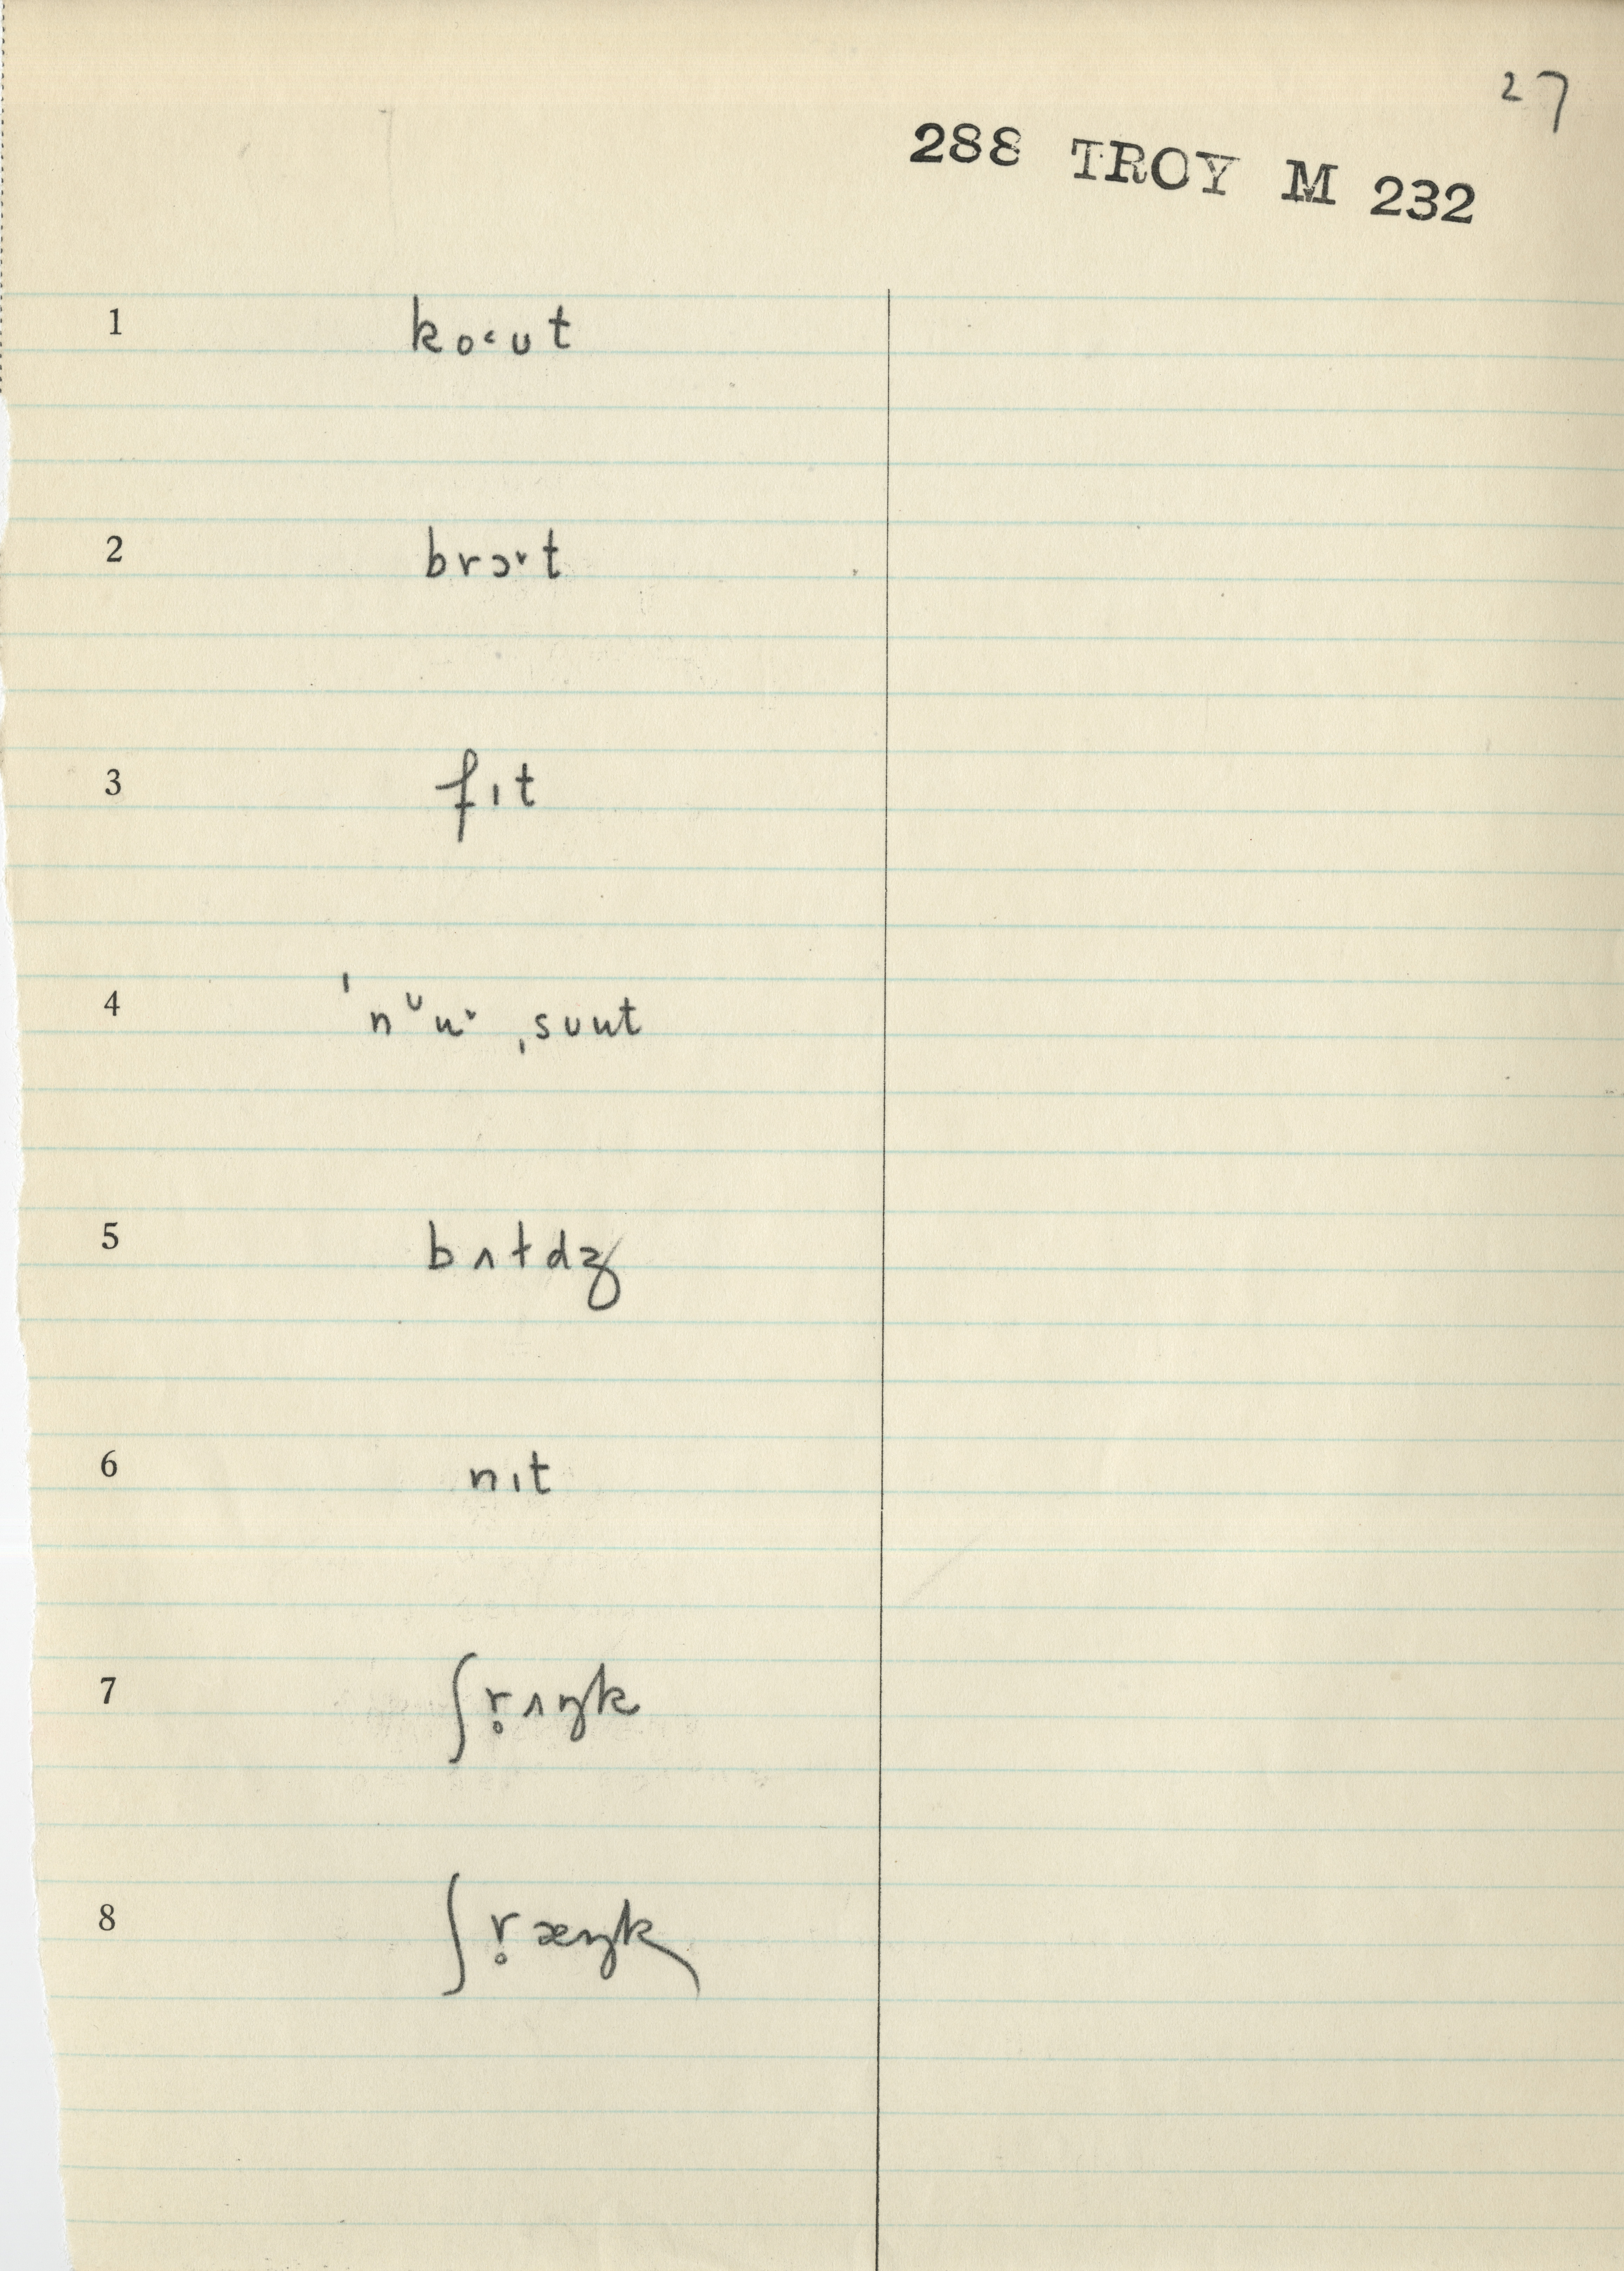 27
288 TROY M 232
1 ko˂ʊt
2 brɔ˅t
3 fɪt
4 ˈnᶷu˅ ˌsuut
5 bʌtdʒ
6 nɪt
7 ʃr̥ʌŋk
8 ʃr̥æŋk